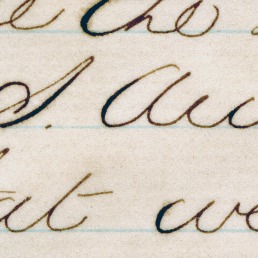 e the
S. Au
at we